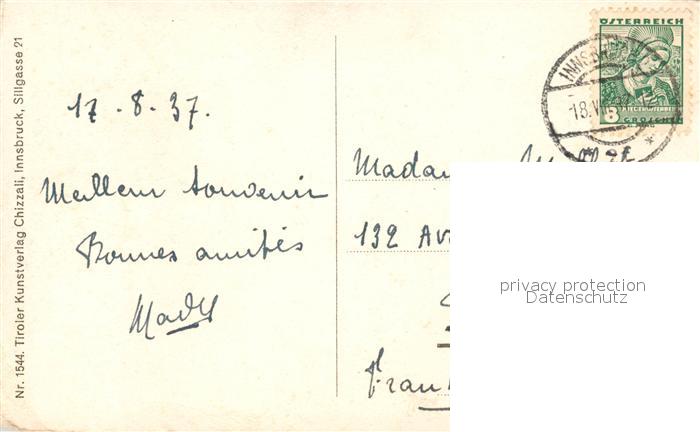 Nr. 1544. Tiroler Kunstverlag Chizzali, Innsbruck, Sillgasse 21
17-8-37.
Meilleur souvenir
Bonnes amitiés
Mady
ÖSTERREICH
6 GROSCHEN
INNSB
18.VIII
Madam
132 Av
Fran
privacy protection
Datenschutz